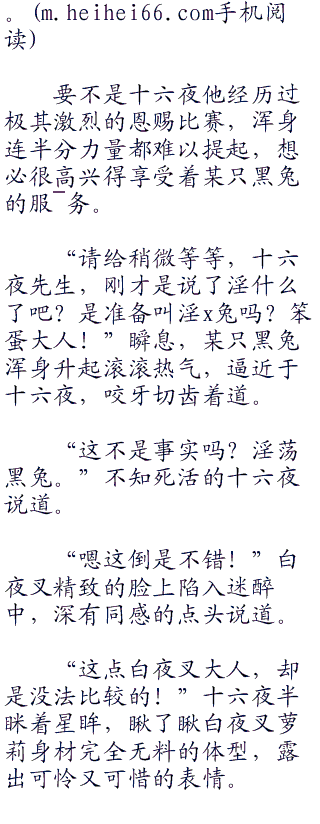 。(m.heihei66.com手机阅
读)
要不是十六夜他经历过
极其激烈的恩赐比赛，浑身
连半分力量都难以提起，想
必很高兴得享受着某只黑兔
的服务。
“请给稍微等等，十六
夜先生，刚才是说了淫什么
了吧？是准备叫淫x兔吗？笨
蛋大人！”瞬息，某只黑兔
浑身升起滚滚热气，逼近于
十六夜，咬牙切齿着道。
“这不是事实吗？淫荡
黑兔。”不知死活的十六夜
说道。
“嗯这倒是不错！”白
夜叉精致的脸上陷入迷醉
中，深有同感的点头说道。
“这点白夜叉大人，却
是没法比较的！”十六夜半
眯着星眸，瞅了瞅白夜叉萝
莉身材完全无料的体型，露
出可怜又可惜的表情。